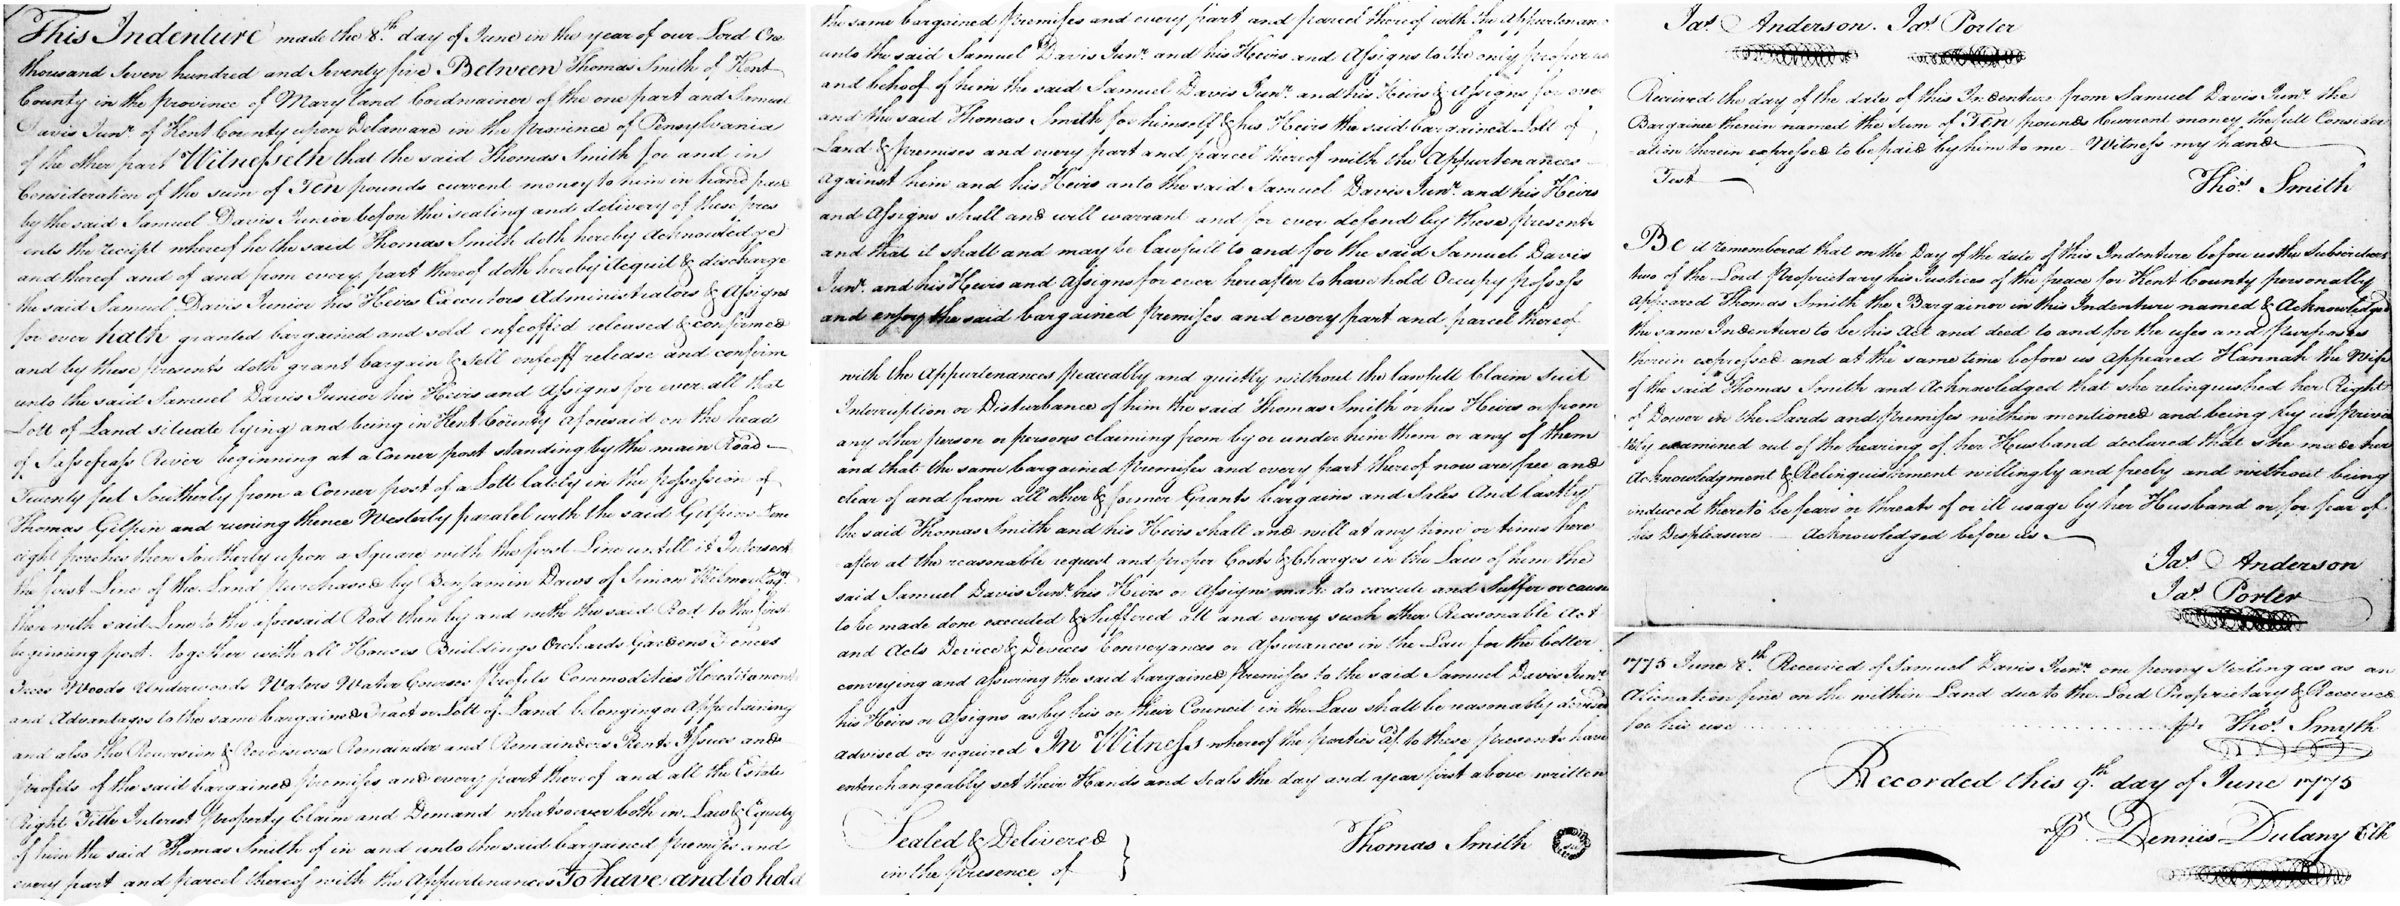 This Indenture made the 8.th day of June in the year of our Lord One
thousand Seven hundred and Seventy five Between Thomas Smith of Kent
County in the province of Maryland Cordwainer of the one part and Samuel
Davis Junr. of Kent County upon Delaware in the province of Pensylvania
of the other part Witnesseth that the said Thomas Smith for and in
Consideration of the sum of Ten pounds current money to him in hand paid
by the said Samuel Davis Junior before the sealing and delivery of these pres
ents the receipt whereof he the said Thomas Smith doth hereby acknowledge
and thereof and of and from every part thereof doth hereby Acquit & discharge
the said Samuel Davis Junior his Heirs Executors Administrators & Assigns
for ever hath granted bargained and sold enfeoffed released & confirmed
and by these presents doth grant bargain & sell enfeoff release and confirm
unto the said Samuel Davis Junior his Heirs and Assigns for ever all that
Lott of Land situate lying and being in Kent County aforesaid on the head
of Sassefrass River beginning at a Corner post standing by the main Road
Twenty feet Southerly from a Corner post of a Lott lately in the possession of
Thomas Gilpin and runing thence Westerly paralel with the said Gilpins Line
eight perches then Southerly upon a Square with the first Line untill it Intersect
the first Line of the Land purchased by Benjamin Daws of Simon Wilmer Esqr.
then with said Line to the aforesaid Rod then by and with the said Rod to the first
beginning post. together with all Houses Buildings Orchards Gardens Fences
Trees Woods Underwoods Waters Water Courses profits Commodities Hereditaments
and Advantages to the same bargained Tract or Lott of Land belonging or Appertaining
and also the Reversion & Reversions Remainder and Remainders Rents Issues and
profits of the said bargained premises and every part thereof and all the Estate
Right Title Interest property Claim and Demand whatsoever both in Law & Equity
of him the said Thomas Smith of in and unto the said bargained premises and
every part and parcel thereof with the Appurtenances To have and to hold
the same bargained premises and every part and parcel thereof with the Appurtenances
unto the said Samuel Davis Junr. and his Heirs and Assigns to the only proper use
and behoof of him the said Samuel Davis Junr. and his Heirs & Assigns for ever
and the said Thomas Smith for himself & his Heirs the said bargained Lott of
Land & premises and every part and parcel thereof with the Appurtenances
against him and his Heirs unto the said Samuel Davis Junr. and his Heirs
and Assigns shall and will warrant and for ever defend by these presents
and that it shall and may be lawfull to and for the said Samuel Davis
Junr. and his Heirs and Assigns for ever hereafter to have hold Occupy possess
and enjoy the said bargained premises and every part and parcel thereof
with the Appurtenances peaceably and quietly without the lawfull Claim Suit
Interruption or Disturbance of him the said Thomas Smith or his Heirs or from
any other person or persons claiming from by or under him them or any of them
and that the same bargained premises and every part thereof now are free and
clear of and from all other & former Grants bargains and Sales And lastly
the said Thomas Smith and his Heirs shall and will at any time or times here
after at the reasonable request and proper Costs & Charges in the Law of him the
said Samuel Davis Junr. his Heirs or Assigns make do execute and Suffer or cause
to be made done executed & Suffered all and every such other Reasonable Act
and Acts Device & Devices Conveyances or Assurances in the Law for the better
conveying and assuring the said bargained premises to the said Samuel Davis Junr.
his Heirs or Assigns as by his or their Council in the Law shall be reasonably devised
advised or required In Witness whereof the parties to these presents have
enterchangeably set their Hands and Seals the day and year first above written
Sealed & Delivered
in the presence of
Thomas Smith
Jas. Anderson. Jas. Porter
Received the day of the date of this Indenture from Samuel Davis Junr. the
Bargainee therein named the Sum of Ten pounds Current money the full Consider
-ation therein expressed to be paid by him to me Witness my hand
Test
Thos. Smith
Be it remembered that on the Day of the date of this Indenture before us the Subscribers
two of the Lord Proprietary his Justices of the peace for Kent County personally
appeared Thomas Smith the Bargainor in this Indenture named & Acknowledged
the same Indenture to be his Act and deed to and for the uses and purposes
therein expressed and at the same time before us appeared Hannah the Wife
of the said Thomas Smith and Acknowledged that she relinquished her Right
of Dower in the Lands and premises within mentioned and being by us priva
tely examined out of the hearing of her Husband declared that she made her
Acknowledgment & Relinquishment willingly and freely and without being
induced thereto be fears or threats of or ill usage by her Husband or for fear of
his Despleasure Acknowledged before us
Jas. Anderson
Jas. Porter
1775 June 8.th Received of Samuel Davis Junr. one penny Sterling as as an
Alienation fine on the within Land due to the Lord Proprietary & Received
for his use pr. Thos. Smyth
Recorded this 9.th day of June 1775
pr. Dennis Dulany Clk